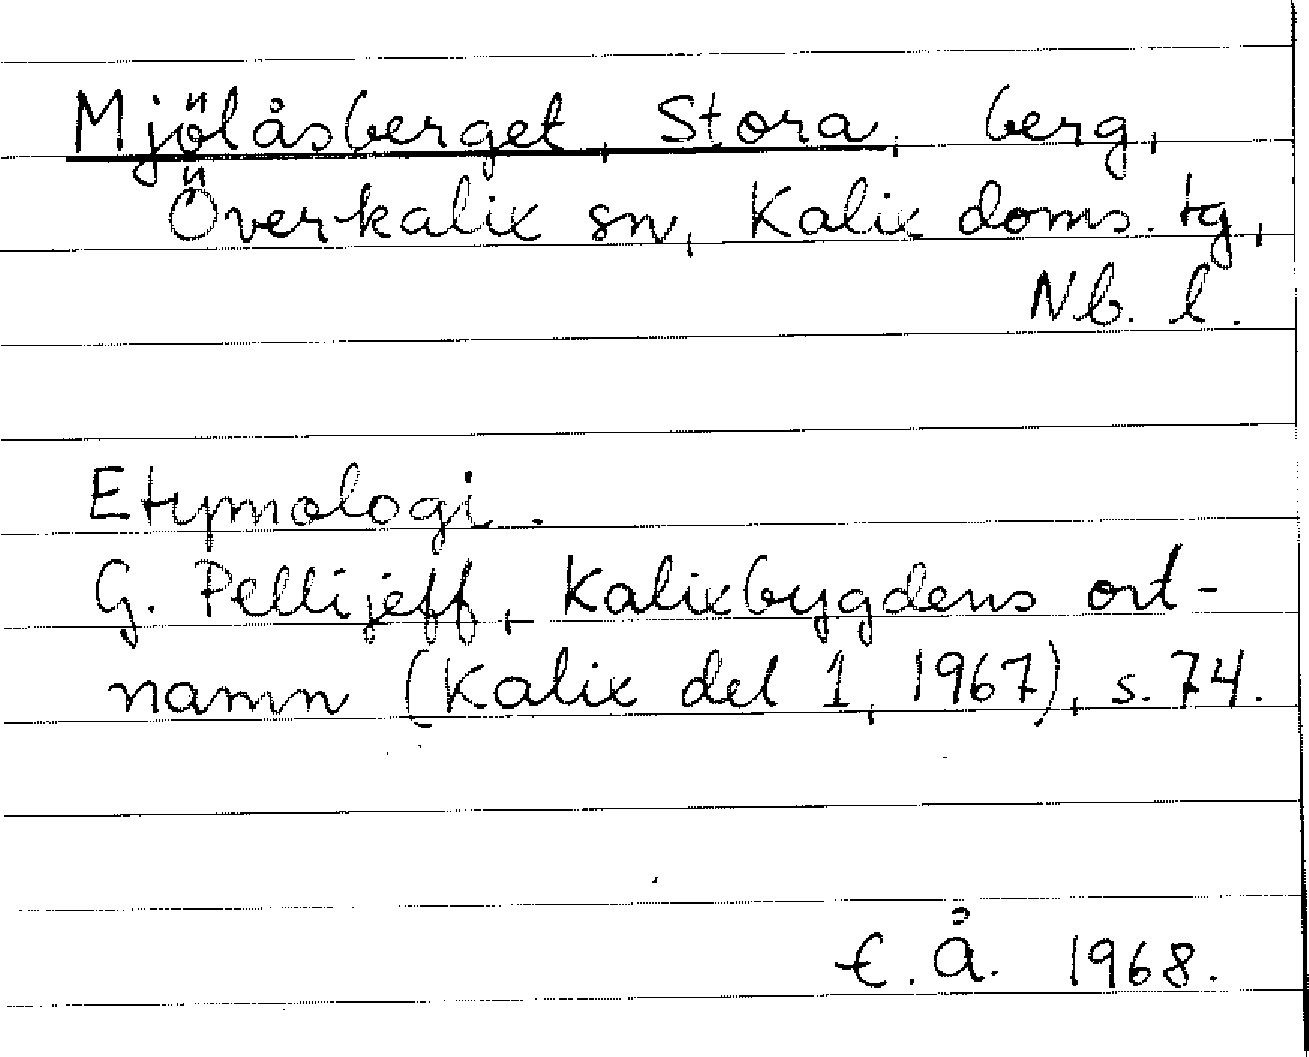 Mjölåsberget, Stora, berg,
Överkalix sn, Kalix doms. tg,
Nb. l.
Etymologi.
G. Pellijeff, Kalixbygdens ort-
namn (Kalix del 1, 1967), s. 74.
E. Å. 1968.